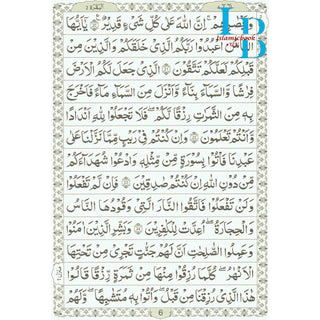 البقرة ٢
Islamicbook
وَاَبْصَارِهِمْ ؕ اِنَّ اللّٰهَ عَلٰى كُلِّ شَىْءٍ قَدِيْرٌ ۝ يٰۤاَيُّهَا
النَّاسُ اعْبُدُوْا رَبَّكُمُ الَّذِىْ خَلَقَكُمْ وَالَّذِيْنَ مِنْ
قَبْلِكُمْ لَعَلَّكُمْ تَتَّقُوْنَ ۝ الَّذِىْ جَعَلَ لَكُمُ الْاَرْضَ
فِرَاشًا وَّالسَّمَآءَ بِنَآءً وَّاَنْزَلَ مِنَ السَّمَآءِ مَآءً فَاَخْرَجَ
بِهٖ مِنَ الثَّمَرٰتِ رِزْقًا لَّكُمْ ۚ فَلَا تَجْعَلُوْا لِلّٰهِ اَنْدَادًا
وَّاَنْتُمْ تَعْلَمُوْنَ ۝ وَاِنْ كُنْتُمْ فِىْ رَيْبٍ مِّمَّا نَزَّلْنَا عَلٰى
عَبْدِنَا فَاْتُوْا بِسُوْرَةٍ مِّنْ مِّثْلِهٖ ۪ وَادْعُوْا شُهَدَآءَكُمْ
مِّنْ دُوْنِ اللّٰهِ اِنْ كُنْتُمْ صٰدِقِيْنَ ۝ فَاِنْ لَّمْ تَفْعَلُوْا
وَلَنْ تَفْعَلُوْا فَاتَّقُوا النَّارَ الَّتِىْ وَقُوْدُهَا النَّاسُ
وَالْحِجَارَةُ ۖۚ اُعِدَّتْ لِلْكٰفِرِيْنَ ۝ وَبَشِّرِ الَّذِيْنَ اٰمَنُوْا
وَعَمِلُوا الصّٰلِحٰتِ اَنَّ لَهُمْ جَنّٰتٍ تَجْرِىْ مِنْ تَحْتِهَا
الْاَنْهٰرُ ؕ كُلَّمَا رُزِقُوْا مِنْهَا مِنْ ثَمَرَةٍ رِّزْقًا ۙ قَالُوْا
هٰذَا الَّذِىْ رُزِقْنَا مِنْ قَبْلُ ۙ وَاُتُوْا بِهٖ مُتَشَابِهًا ؕ وَلَهُمْ
6